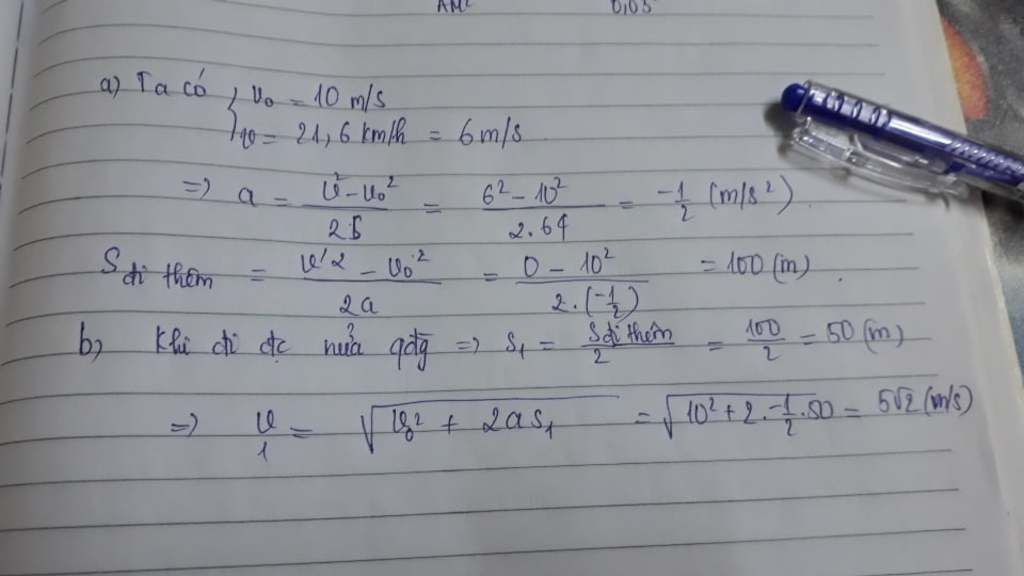 AM² 0,05
a) Ta có { v₀ = 10 m/s
v = 21,6 km/h = 6 m/s
=> a = (v² - v₀²)/(2S) = (6² - 10²)/(2.64) = -1/2 (m/s²).
S đi thêm = (v'² - v₀²)/(2a) = (0 - 10²)/(2.(-1/2)) = 100 (m).
b) Khi đi đc nửa qđg => s₁ = (s đi thêm)/2 = 100/2 = 50 (m)
=> v₁ = √(v₀² + 2as₁) = √(10² + 2.-1/2.50) = 5√2 (m/s)